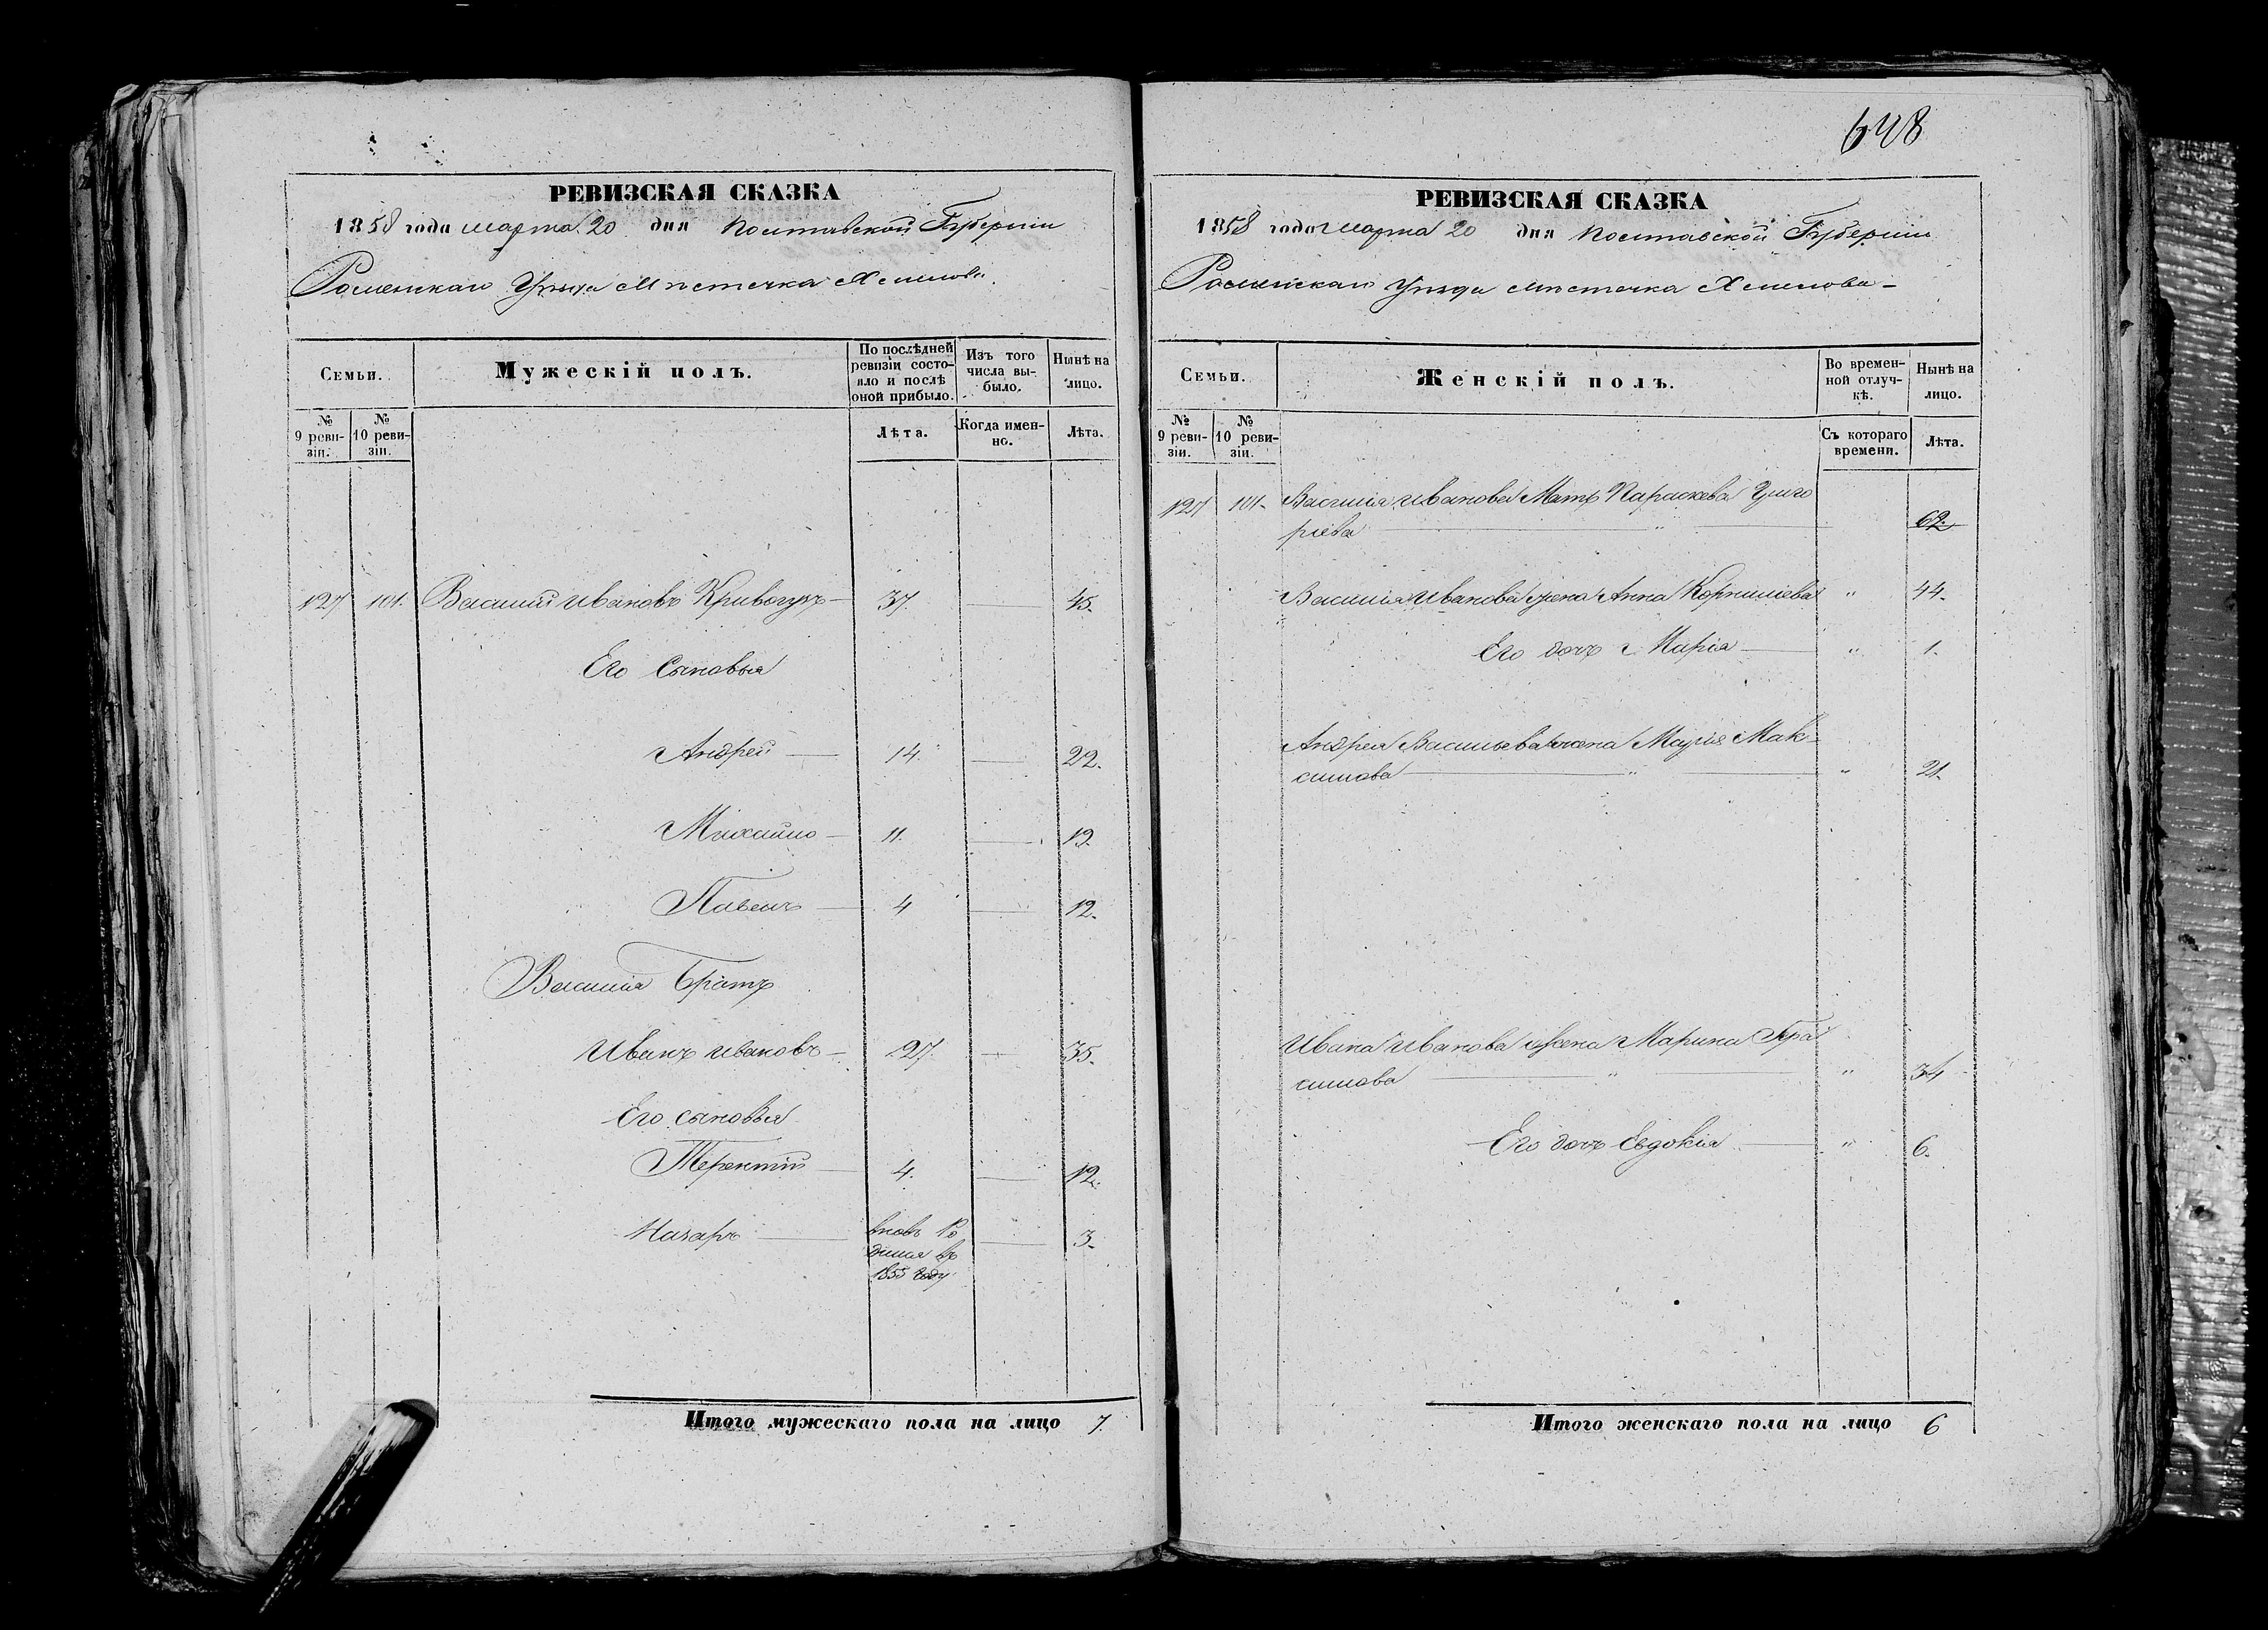 648
РЕВИЗСКАЯ СКАЗКА
1858 года марта 20 дня Полтавской Губернии
Роменскаго Уѣзда Мѣстечка Хмелова
Семьи.
Мужескій полъ.
По послѣдней ревизіи состояло и послѣ оной прибыло.
Изъ того числа выбыло.
Нынѣ на лицо.
№ 9 ревизіи.
№ 10 ревизіи.
Лѣта.
Когда именно.
Лѣта.
127 101. Василій Ивановъ 37. 45.
Его Сыновья
Андрей 14. 22.
Михайло 11. 19.
Павелъ 4 12.
Василія Братъ
Иванъ Ивановъ 27. 35.
Его сыновья
Терентій 4. 12.
Назаръ вновь Ро 3.
дился въ
1855 году
Итого мужескаго пола на лицо 7.
РЕВИЗСКАЯ СКАЗКА
1858 года марта 20 дня Полтавской Губернии
Роменскаго Уѣзда мѣстечка Хмелова
Семьи.
Женскій полъ.
Во временной отлучкѣ.
Нынѣ на лицо.
№ 9 ревизіи.
№ 10 ревизіи.
Съ котораго времени.
Лѣта.
127 101. Василія Иванова Мать Параскева Григо
рьева " 62.
Василія Иванова жена Анна Корнилиева " 44.
Его дочь Марія " 1.
Андрея Васильева жена Марія Мак-
симова " " 21.
Ивана Иванова жена Марина Гера
симова " " 34
Его дочь Евдокія " 6.
Итого женскаго пола на лицо 6